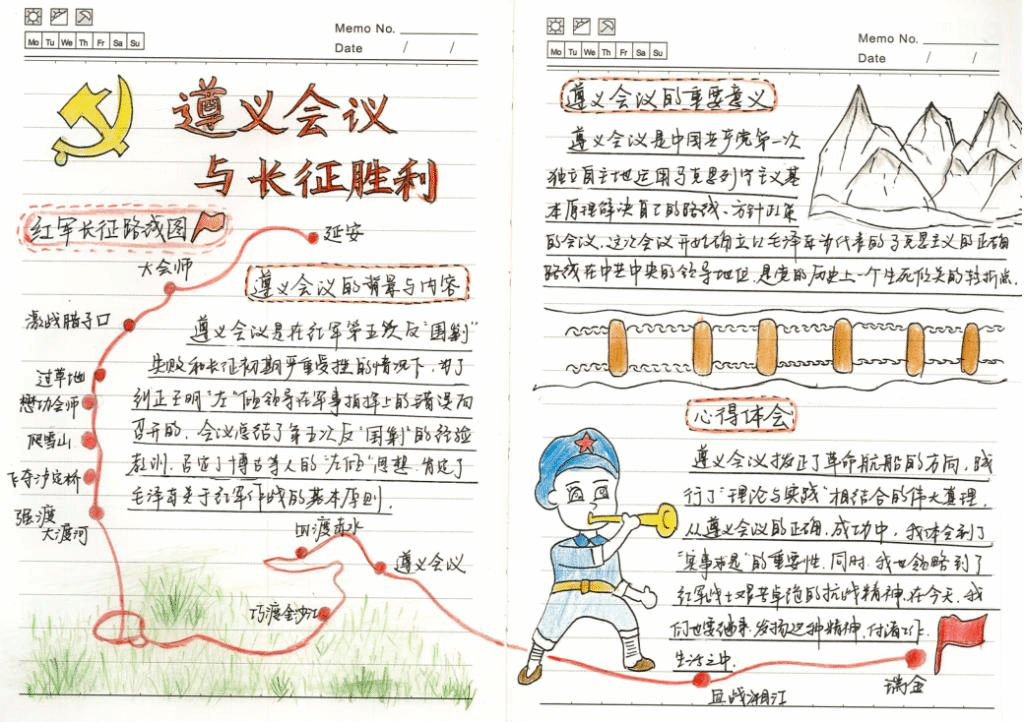 Memo No.
Mo Tu We Th Fr Sa Su
Date / /
遵义会议
与长征胜利
红军长征路线图
延安
大会师
激战腊子口
过草地
懋功会师
爬雪山
飞夺泸定桥
强渡
大渡河
遵义会议的背景与内容
遵义会议是在红军第五次反"围剿"
失败和长征初期严重受挫的情况下,为了
纠正王明"左"倾领导在军事指挥上的错误而
召开的,会议总结了第五次反"围剿"的经验
教训,否定了博古等人的"左倾"思想,肯定了
毛泽东关于红军作战的基本原则.
四渡赤水
遵义会议
巧渡金沙江
Memo No.
Mo Tu We Th Fr Sa Su
Date / /
遵义会议的重要意义
遵义会议是中国共产党第一次
独立自主地运用马克思列宁主义基
本原理解决自己的路线、方针政策
的会议,这次会议开始确立以毛泽东为代表的马克思主义的正确
路线在中共中央的领导地位,是党的历史上一个生死攸关的转折点.
心得体会
遵义会议拨正了革命航船的方向,践
行了"理论与实践"相结合的伟大真理,
从遵义会议的正确,成功中,我体会到了
"实事求是"的重要性,同时,我也领略到了
红军战士艰苦卓绝的抗战精神,在今天,我
们也要继承、发扬这种精神,付诸工作、
生活之中.
血战湘江
瑞金